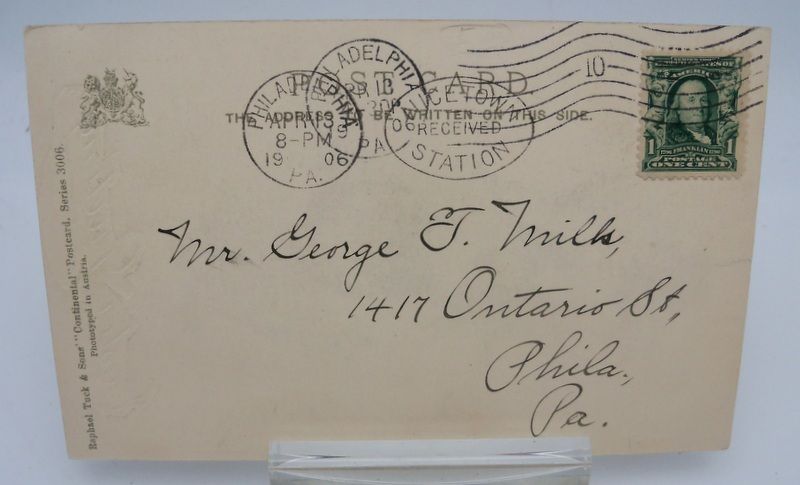 POST CARD.
THE ADDRESS TO BE WRITTEN ON THIS SIDE.
PHILADELPHIA
APR 13
8-PM
1906
PA.
PHILADELPHIA
PA
NICETOWN
RECEIVED
STATION
10
SERIES 1902
UNITED STATES OF
AMERICA
1 FRANKLIN 1
POSTAGE
ONE CENT
Mr. George T. Mills,
1417 Ontario St,
Phila.,
Pa.
Raphael Tuck & Sons' "Continental" Postcard, Series 3006.
Phototyped in Austria.